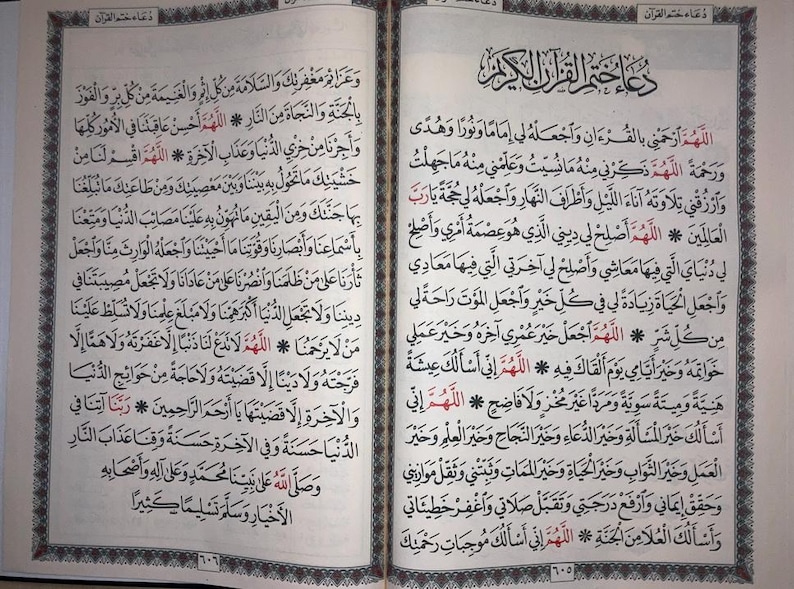 دُعَاء خَتم القرآن
دُعَاءُ خَتْمِ القُرْآنِ الكَرِيْمِ
اللَّهُمَّ ٱرْحَمْنِي بالقُرْءَانِ وَٱجْعَلهُ لِي إِمَامًا وَنُورًا وَهُدًى
وَرَحْمَةً اللَّهُمَّ ذَكِّرْنِي مِنْهُ مَانُسِّيتُ وَعَلِّمْنِي مِنْهُ مَاجَهِلْتُ
وَٱرْزُقْنِي تِلَاوَتَهُ آنَاءَ اللَّيْلِ وَأَطْرَافَ النَّهَارِ وَٱجْعَلْهُ لِي حُجَّةً يَا رَبَّ
العَالَمِينَ * اللَّهُمَّ أَصْلِحْ لِي دِينِي الَّذِي هُوَ عِصْمَةُ أَمْرِي وَأَصْلِحْ
لِي دُنْيَايَ الَّتِي فِيهَا مَعَاشِي وَأَصْلِحْ لِي آخِرَتِي الَّتِي فِيهَا مَعَادِي
وَٱجْعَلِ الحَيَاةَ زِيَادَةً لِي فِي كُلِّ خَيْرٍ وَٱجْعَلِ المَوْتَ رَاحَةً لِي
مِن كُلِّ شَرٍّ * اللَّهُمَّ ٱجْعَلْ خَيْرَ عُمْرِي آخِرَهُ وَخَيْرَ عَمَلِي
خَوَاتِمَهُ وَخَيْرَ أَيَّامِي يَوْمَ أَلْقَاكَ فِيهِ * اللَّهُمَّ إِنِّي أَسْأَلُكَ عِيشَةً
هَنِيَّةً وَمِيتَةً سَوِيَّةً وَمَرَدًّا غَيْرَ مُخْزٍ وَلَا فَاضِحٍ * اللَّهُمَّ إِنِّي
أَسْأَلُكَ خَيْرَ المَسْأَلَةِ وَخَيْرَ الدُّعَاءِ وَخَيْرَ النَّجَاحِ وَخَيْرَ العِلْمِ وَخَيْرَ
العَمَلِ وَخَيْرَ الثَّوَابِ وَخَيْرَ الحَيَاةِ وَخَيْرَ المَمَاتِ وَثَبِّتْنِي وَثَقِّلْ مَوَازِينِي
وَحَقِّقْ إِيمَانِي وَٱرْفَعْ دَرَجَتِي وَتَقَبَّلْ صَلَاتِي وَٱغْفِرْ خَطِيئَاتِي
وَأَسْأَلُكَ العُلَا مِنَ الجَنَّةِ * اللَّهُمَّ إِنِّي أَسْأَلُكَ مُوجِبَاتِ رَحْمَتِكَ
٦٠٥
دُعَاء خَتم القرآن
وَعَزَائِمَ مَغْفِرَتِكَ وَالسَّلَامَةَ مِن كُلِّ إِثْمٍ وَالغَنِيمَةَ مِنْ كُلِّ بِرٍّ وَالفَوْزَ
بِالجَنَّةِ وَالنَّجَاةَ مِنَ النَّارِ * اللَّهُمَّ أَحْسِنْ عَاقِبَتَنَا فِي الأُمُورِ كُلِّهَا
وَأَجِرْنَا مِنْ خِزْيِ الدُّنْيَا وَعَذَابِ الآخِرَةِ * اللَّهُمَّ اقْسِمْ لَنَا مِنْ
خَشْيَتِكَ مَا تَحُولُ بِهِ بَيْنَنَا وَبَيْنَ مَعْصِيَتِكَ وَمِنْ طَاعَتِكَ مَا تُبَلِّغُنَا
بِهَا جَنَّتَكَ وَمِنَ اليَقِينِ مَا تُهَوِّنُ بِهِ عَلَيْنَا مَصَائِبَ الدُّنْيَا وَمَتِّعْنَا
بِأَسْمَاعِنَا وَأَبْصَارِنَا وَقُوَّتِنَا مَا أَحْيَيْتَنَا وَاجْعَلْهُ الوَارِثَ مِنَّا وَاجْعَلْ
ثَأْرَنَا عَلَى مَنْ ظَلَمَنَا وَانْصُرْنَا عَلَى مَنْ عَادَانَا وَلَا تَجْعَلْ مُصِيبَتَنَا فِي
دِينِنَا وَلَا تَجْعَلِ الدُّنْيَا أَكْبَرَ هَمِّنَا وَلَا مَبْلَغَ عِلْمِنَا وَلَا تُسَلِّطْ عَلَيْنَا
مَنْ لَا يَرْحَمُنَا * اللَّهُمَّ لَا تَدَعْ لَنَا ذَنْبًا إِلَّا غَفَرْتَهُ وَلَا هَمًّا إِلَّا
فَرَّجْتَهُ وَلَا دَيْنًا إِلَّا قَضَيْتَهُ وَلَا حَاجَةً مِنْ حَوَائِجِ الدُّنْيَا
وَالآخِرَةِ إِلَّا قَضَيْتَهَا يَا أَرْحَمَ الرَّاحِمِينَ * رَبَّنَا آتِنَا فِي
الدُّنْيَا حَسَنَةً وَفِي الآخِرَةِ حَسَنَةً وَقِنَا عَذَابَ النَّارِ
وَصَلَّى اللهُ عَلَى نَبِيِّنَا مُحَمَّدٍ وَعَلَى آلِهِ وَأَصْحَابِهِ
الأَخْيَارِ وَسَلَّمَ تَسْلِيمًا كَثِيرًا
٦٠٦